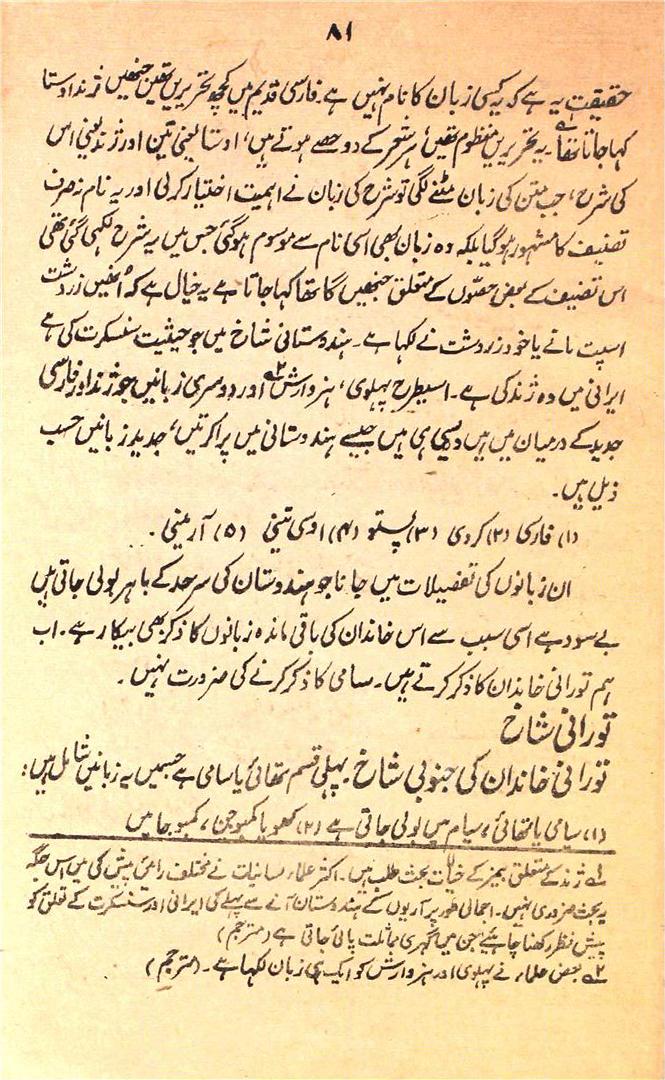 ۸۱
حقیقت یہ ہے کہ یہ کسی زبان کا نام نہیں ہے۔ فارسی قدیم میں کچھ تحریریں تھیں جنھیں ژنداوستا
کہا جاتا تھا۱؎۔ یہ تحریریں منظوم تھیں، ہر شعر کے دو حصے ہوتے ہیں، اوستا یعنی متن اور ژند یعنی اس
کی شرح، جب متن کی زبان مٹنے لگی تو شرح کی زبان نے اہمیت اختیار کرلی اور یہ نام نہ صرف
تصنیف کا مشہور ہوگیا بلکہ وہ زبان بھی اسی نام سے موسوم ہوگئی جس میں یہ شرح لکھی گئی تھی
اس تصنیف کے بعض حصّوں کے متعلق جنھیں گاتھا کہا جاتا ہے یہ خیال ہے کہ اُنھیں زردشت
اسپت مانے یا خود زردشت نے لکھا ہے۔ ہندوستانی شاخ میں جو حیثیت سنسکرت کی ہے
ایرانی میں وہ ژند کی ہے۔ اسیطرح پہلوی، ہزوارش۲؎ اور دوسری زبانیں جو ژند اور فارسی
جدید کے درمیان میں ہیں ویسی ہی ہیں جیسے ہندوستانی میں پراکرتیں، جدید زبانیں حسب
ذیل ہیں۔
(۱) فارسی (۲) کردی (۳) پشتو (۴) اوسی تینی (۵) آرمینی۔
ان زبانوں کی تفصیلات میں جانا جو ہندوستان کی سرحد کے باہر بولی جاتی ہیں
بے سود ہے اسی سبب سے اس خاندان کی باقی ماندہ زبانوں کا ذکر بھی بیکار ہے۔ اب
ہم تورانی خاندان کا ذکر کرتے ہیں۔ سامی کا ذکر کرنے کی ضرورت نہیں۔
تورانی شاخ
تورانی خاندان کی جنوبی شاخ۔ پہلی قسم تھائی یا سامی ہے جسمیں یہ زبانیں شامل ہیں:
(۱) سیامی یا تھائی، سیام میں بولی جاتی ہے (۲) کھمو یا کمبوجن، کمبوجا میں
۱؎ ژند کے متعلق بیمز کے خیالات بحث طلب ہیں۔ اکثر علماء لسانیات نے مختلف رائیں پیش کی ہیں اس جگہ
یہ بحث ضروری نہیں۔ اجمالی طور پر آریوں کے ہندوستان آنے سے پہلے کی ایرانی اور سنسکرت کے تعلق کو
پیش نظر رکھنا چاہیئے جن میں گہری مماثلت پائی جاتی ہے (مترجم)
۲؎ بعض علماء نے پہلوی اور ہزوارش کو ایک ہی زبان لکھا ہے۔ (مترجم)